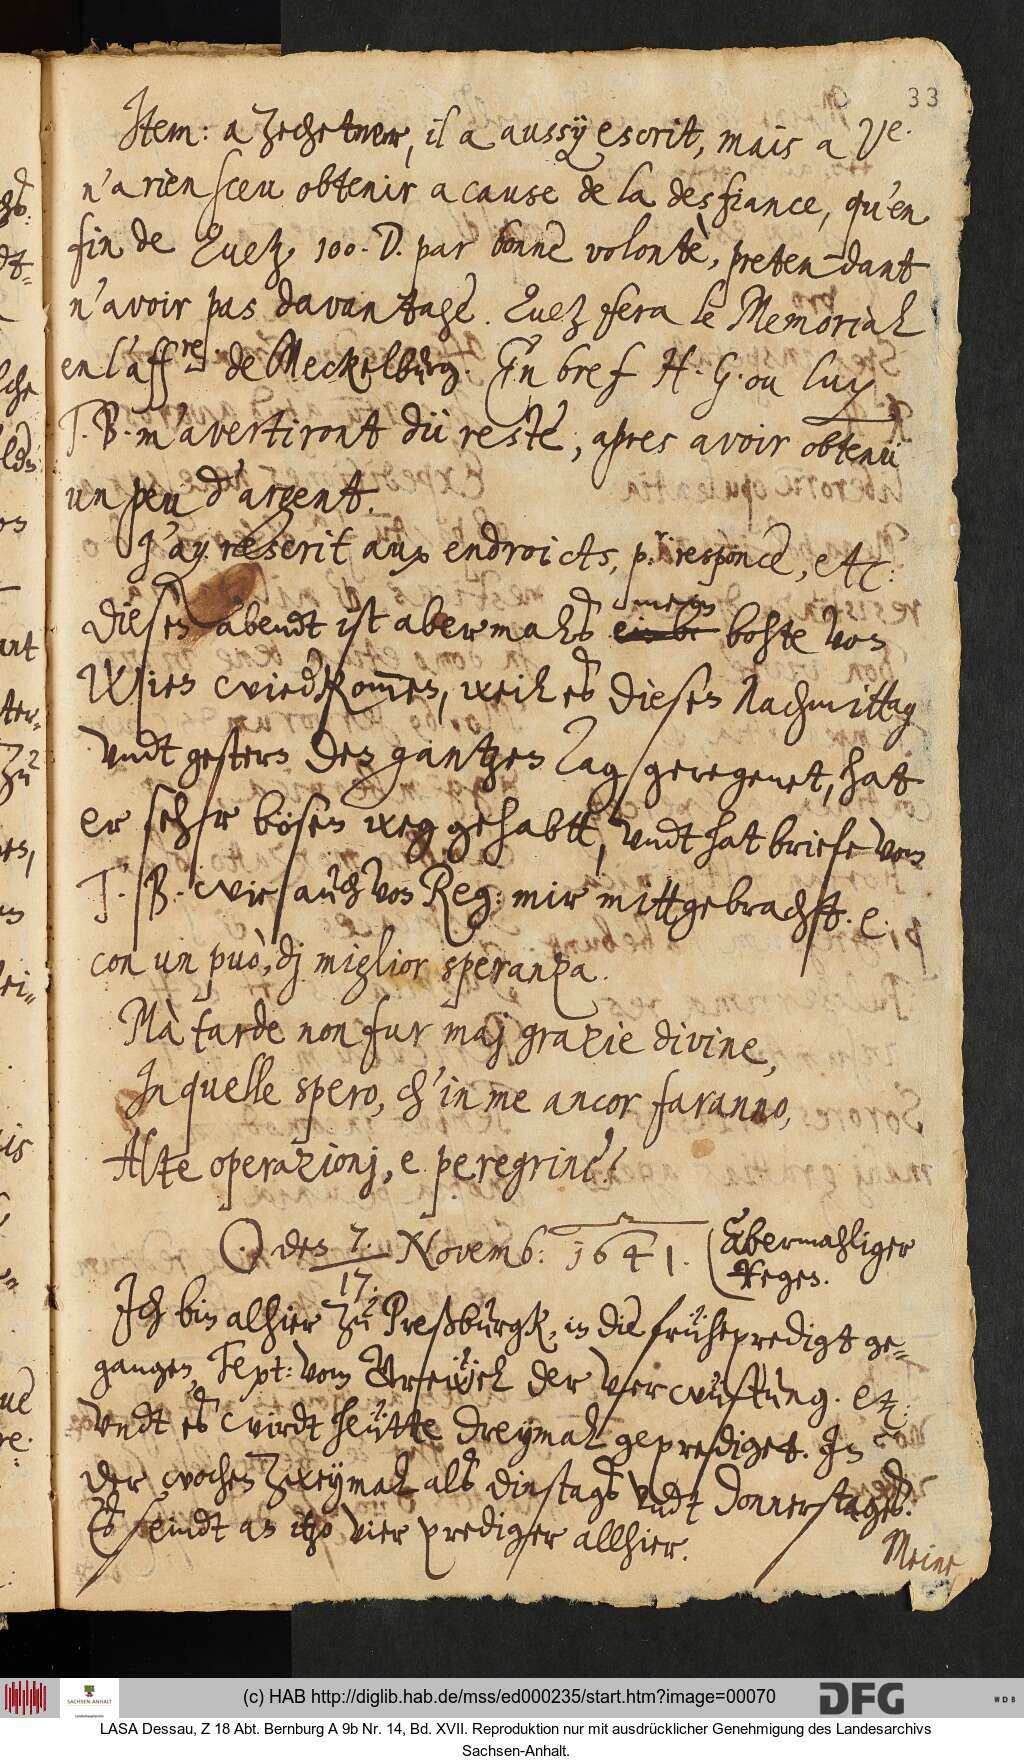 33
Item: a Zechetner, il a aussÿ escrit, mais a Ve.
n'a rien sceu obtenir a cause de la desfiance, qu'en
fin de Euez, 100. D. par bonne volontè, preten-dant
n'avoir pas davantage. Euez fera le Memorial
en l'affre. de Meckelburg. En bref H. G. ou luy
T. B. m'avertiront dü reste, apres avoir obtenü
un peu d'argent.
J'ay rescrit aux endroicts, p.r responce, etc:
Diesen abendt ist abermahls ein be mein bohte von
Wien wiederkommen, weil es diesen Nachmittag
vndt gestern den gantzen Tag geregenet, hat
er sehr bösen weg gehabtt, vndt hat briefe von
T. B. wie auch von Reg: mir mittgebrachtt. e
con un può, dj miglior speranza.
Mà tarde non fur maj grazie divine,
In quelle spero, ch'in me ancor faranno,
Alte operazionj, e peregrine!
☉ den 7. Novemb: 1641. (Abermahliger
17. Regen.
Ich bin alhier zu Preßburgk, in die frühepredigt ge-
gangen, Text: vom Grewel der verwüstung. etc:
vndt es wirdt heütte dreÿmahl geprediget. In
der wochen zweÿmahl als dinstags vndt Donnerstages.
Es seindt an itzo vier prediger allhier.
Meine
(c) HAB http://diglib.hab.de/mss/ed000235/start.htm?image=00070
SACHSEN-ANHALT
DFG
WDB
LASA Dessau, Z 18 Abt. Bernburg A 9b Nr. 14, Bd. XVII. Reproduktion nur mit ausdrücklicher Genehmigung des Landesarchivs
Sachsen-Anhalt.